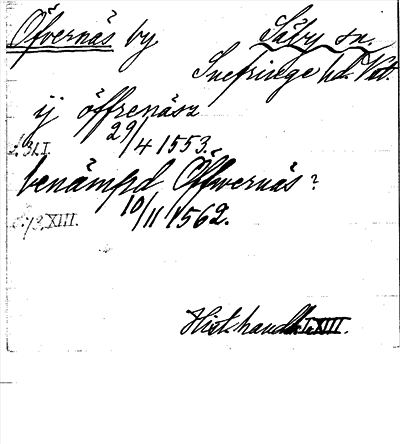 Öfvernäs by Säby sn.
Snefringe hd. Vstl.
ij öffrenäsz
29/4 1553.
s. 31. I.
benämpd Öffwernäs?
10/11 1562.
XIII.
Hist. handl. I. XIII.